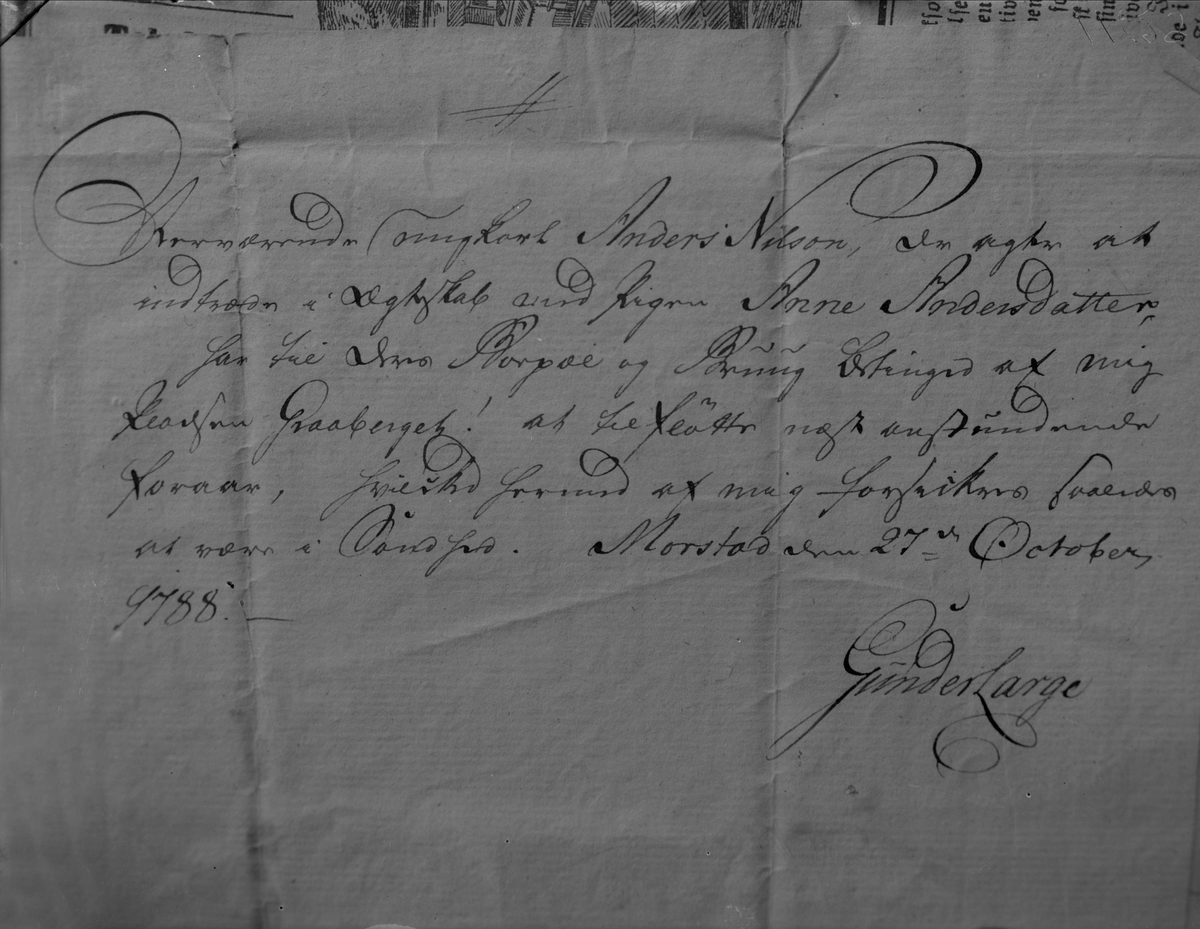 Nærværende ungkarl Anders Nilson, der agter at
indtræde i Ægteskab med Pigen Anne Andersdatter,
har til deres Boepæl og Brug betinged af mig
Pladsen Graaberget! at tilflötte næst anstundende
Foraar, hvilked herved af mig forsickres saaledes
at være i Sandhed. Morstad den 27de October,
1788.
Gunder Large